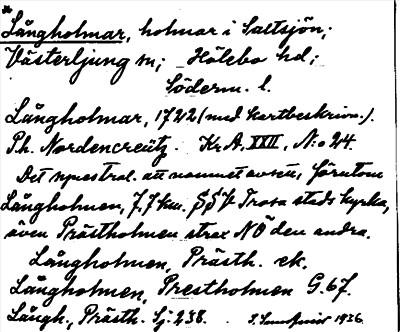 Långholmar, holmar i Saltsjön;
Västerljung sn; Hölebo hd;
Söderm. l.
Långholmar, 1722 (med kartbeskrivn.).
P.h. Nordencreutz. Kr.A. XXII, N:o 24.
Det att namnet avsett, förutom
Långholmen, 7,7 km. SSV Trosa stads kyrka,
även Prästholmen strax NÖ den andra.
Långholmen, Prästh. ek.
Långholmen, Prestholmen G. 67.
Långh., Prästh. Sj: 238. 1936.